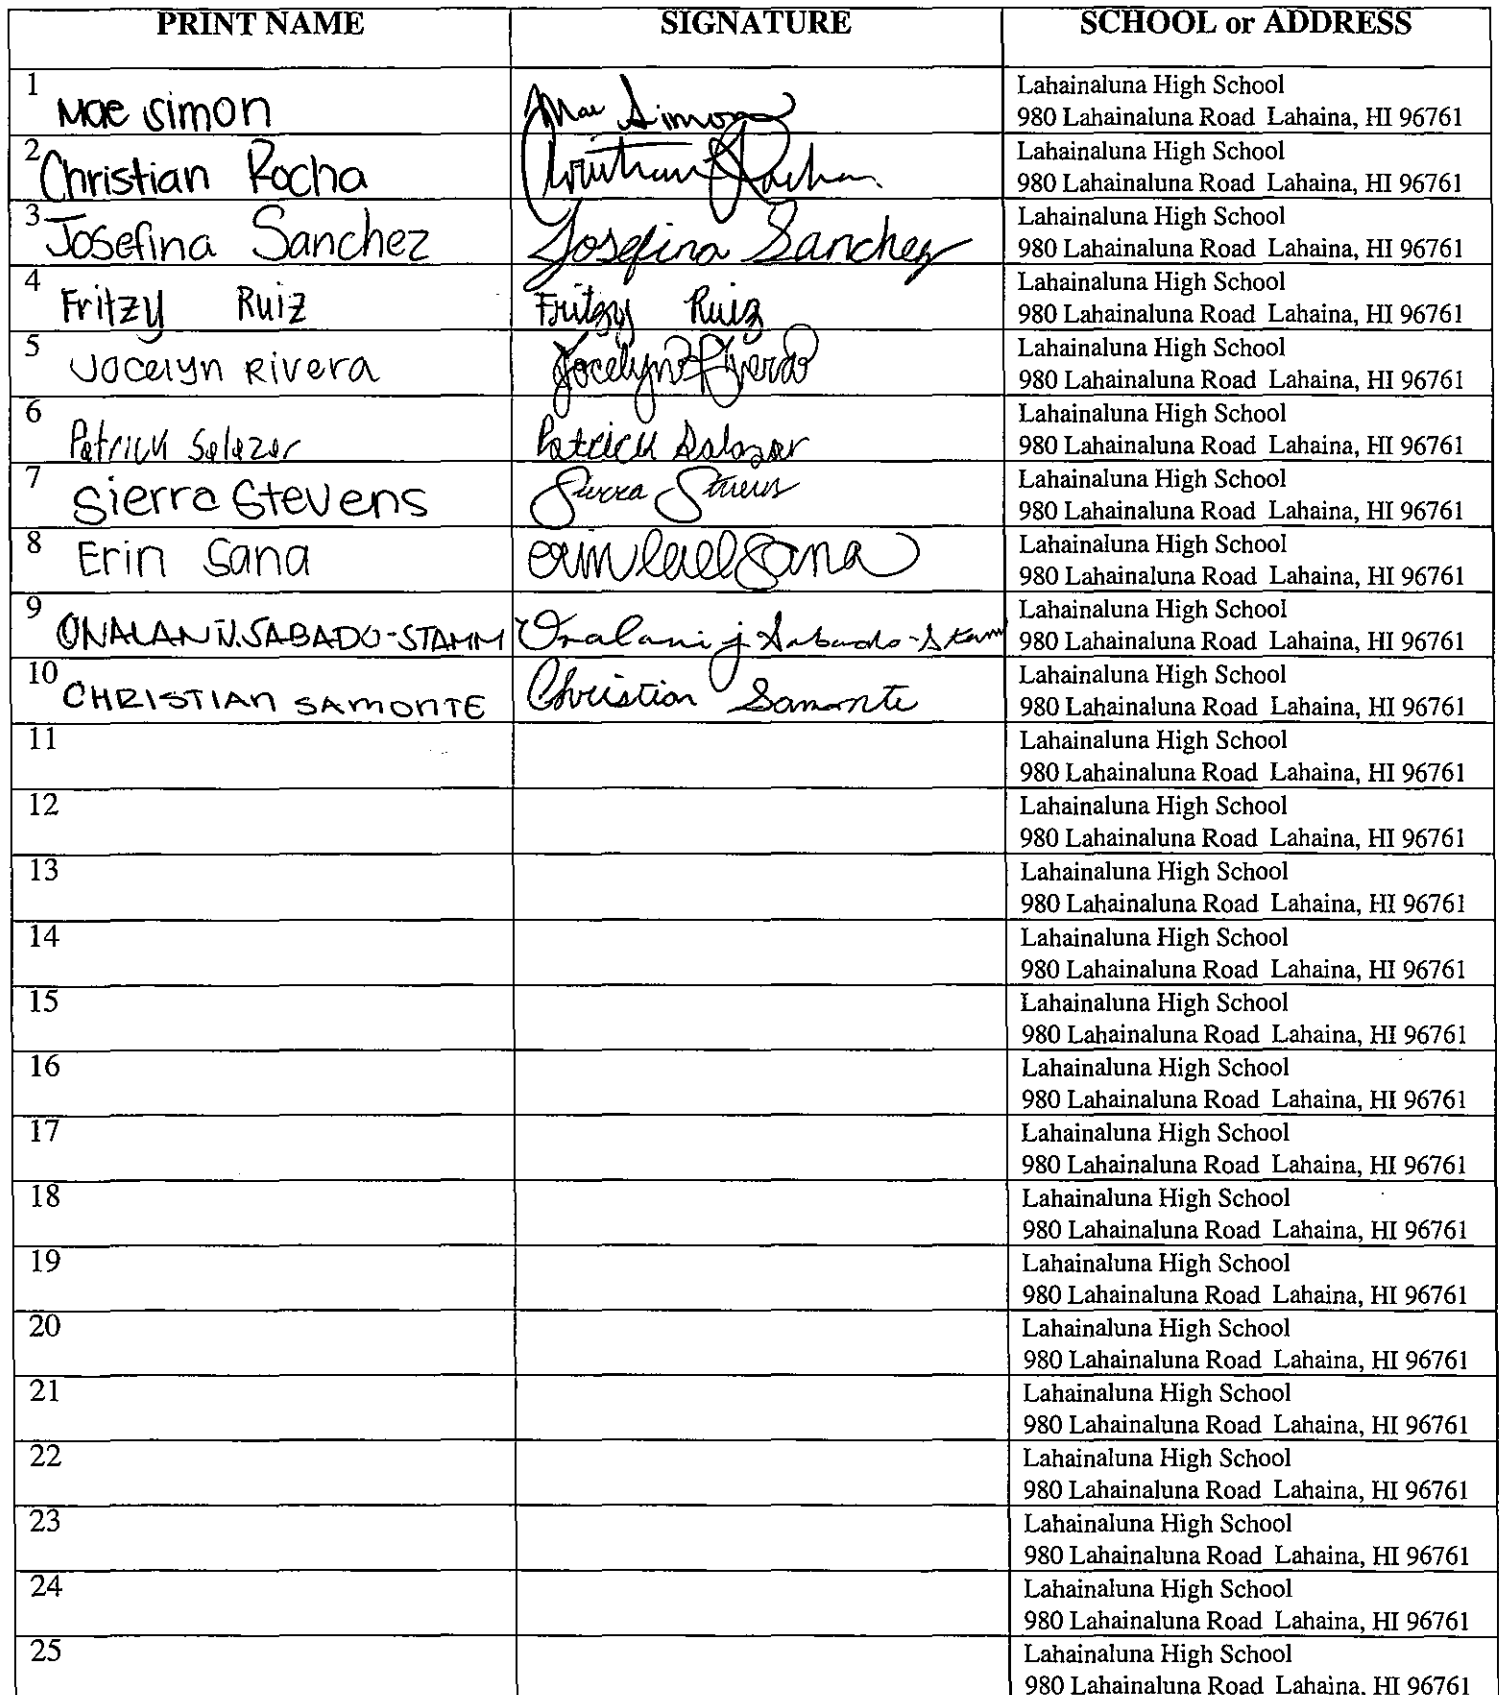 PRINT NAME SIGNATURE SCHOOL or ADDRESS
1 Mae Simon Mae Simon Lahainaluna High School
980 Lahainaluna Road Lahaina, HI 96761
2 Christian Rocha Christian Rocha Lahainaluna High School
980 Lahainaluna Road Lahaina, HI 96761
3 Josefina Sanchez Josefina Sanchez Lahainaluna High School
980 Lahainaluna Road Lahaina, HI 96761
4 Fritzy Ruiz Fritzy Ruiz Lahainaluna High School
980 Lahainaluna Road Lahaina, HI 96761
5 Jocelyn Rivera Jocelyn Rivera Lahainaluna High School
980 Lahainaluna Road Lahaina, HI 96761
6 Patrick Salazar Patrick Salazar Lahainaluna High School
980 Lahainaluna Road Lahaina, HI 96761
7 Sierra Stevens Sierra Stevens Lahainaluna High School
980 Lahainaluna Road Lahaina, HI 96761
8 Erin Sana Erin Sana Lahainaluna High School
980 Lahainaluna Road Lahaina, HI 96761
9 ONALANI J. SABADO-STAMM Onalani j Sabado-Stamm Lahainaluna High School
980 Lahainaluna Road Lahaina, HI 96761
10 CHRISTIAN SAMONTE Christian Samonte Lahainaluna High School
980 Lahainaluna Road Lahaina, HI 96761
11 Lahainaluna High School
980 Lahainaluna Road Lahaina, HI 96761
12 Lahainaluna High School
980 Lahainaluna Road Lahaina, HI 96761
13 Lahainaluna High School
980 Lahainaluna Road Lahaina, HI 96761
14 Lahainaluna High School
980 Lahainaluna Road Lahaina, HI 96761
15 Lahainaluna High School
980 Lahainaluna Road Lahaina, HI 96761
16 Lahainaluna High School
980 Lahainaluna Road Lahaina, HI 96761
17 Lahainaluna High School
980 Lahainaluna Road Lahaina, HI 96761
18 Lahainaluna High School
980 Lahainaluna Road Lahaina, HI 96761
19 Lahainaluna High School
980 Lahainaluna Road Lahaina, HI 96761
20 Lahainaluna High School
980 Lahainaluna Road Lahaina, HI 96761
21 Lahainaluna High School
980 Lahainaluna Road Lahaina, HI 96761
22 Lahainaluna High School
980 Lahainaluna Road Lahaina, HI 96761
23 Lahainaluna High School
980 Lahainaluna Road Lahaina, HI 96761
24 Lahainaluna High School
980 Lahainaluna Road Lahaina, HI 96761
25 Lahainaluna High School
980 Lahainaluna Road Lahaina, HI 96761